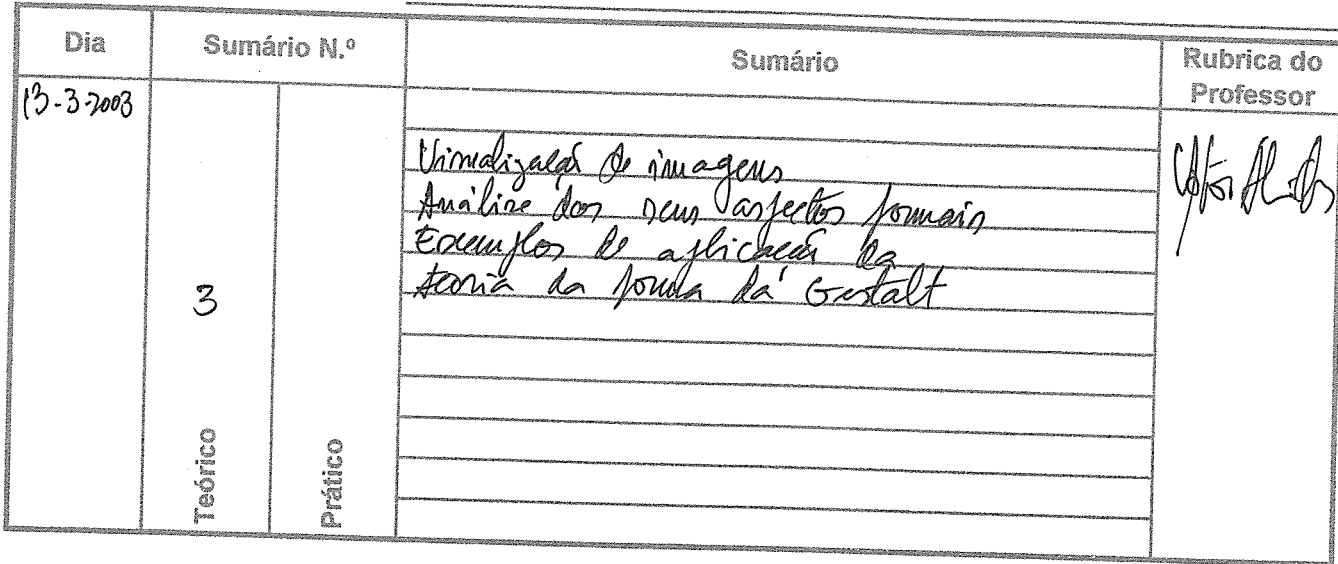 Dia
Sumário N.º
Sumário
Rubrica do
Professor
13-3-2003
Visualização de imagens
Análise dos seus aspectos formais
Exemplos de aplicação da
teoria da forma da Gestalt
3
Teórico
Prático